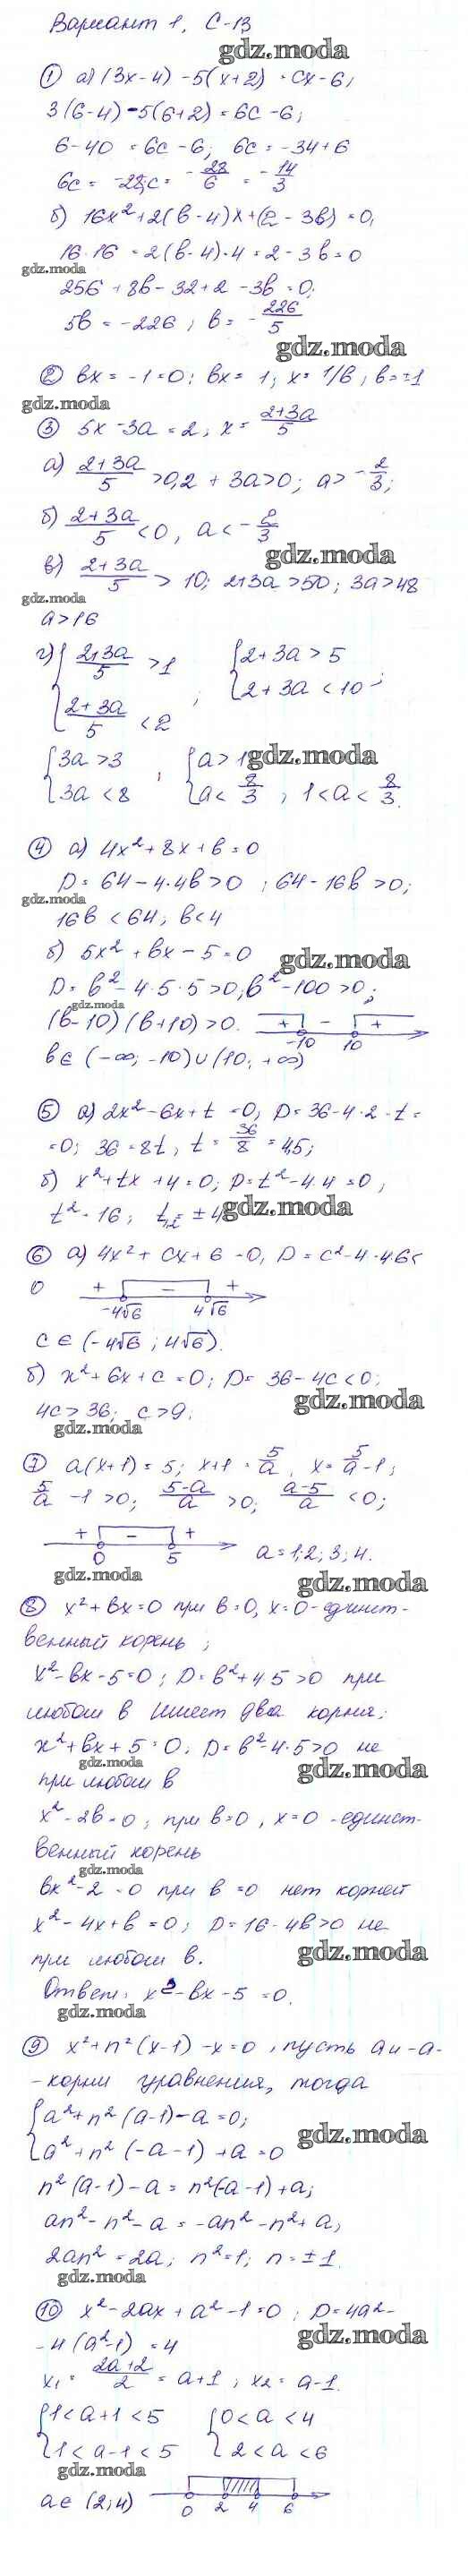 Вариант 1, С-13
gdz.moda
① а) (3x-4) -5(x+2) = cx-6;
3(6-4) -5(6+2) = 6c -6;
6-40 = 6c -6; 6c = -34+6
6c = -28; c = -28/6 = -14/3
б) 16x²+2(b-4)x+(2-3b)=0,
16·16 +2(b-4)·4 = 2-3b=0
gdz.moda
256 +8b-32+2 -3b=0;
5b = -226; b = -226/5
gdz.moda
② bx = -1=0; bx = 1; x = 1/b, b=±1
gdz.moda
③ 5x-3a=2, x = (2+3a)/5
а) (2+3a)/5 >0,2 + 3a>0; a> -2/3;
б) (2+3a)/5 <0, a< -2/3
gdz.moda
в) (2+3a)/5 > 10; 2+3a >50; 3a>48
gdz.moda
a>16
г) { (2+3a)/5 >1 ; { 2+3a > 5
(2+3a)/5 <2 2+3a <10 ;
{ 3a >3 ; { a > 1
gdz.moda
3a <8 a< 8/3 , 1<a< 8/3.
④ а) 4x²+8x+b=0
D = 64-4·4b>0 ; 64-16b>0;
gdz.moda
16b <64; b<4
б) 5x²+bx-5=0
gdz.moda
D = b²-4·5·5>0; b²-100>0;
gdz.moda
(b-10)(b+10)>0. + - +
-10 10
b∈(-∞; -10)∪(10; +∞)
⑤ а) 2x²-6x+t=0, D=36-4·2·t=
=0; 36=8t, t = 36/8 = 4,5;
б) x²+tx+4=0; D=t²-4·4=0;
t²=16; t₁,₂= ±4
gdz.moda
⑥ а) 4x²+cx+6=0, D=c²-4·4·6<
0 + - +
-4√6 4√6
c∈(-4√6; 4√6).
б) x²+6x+c=0; D=36-4c<0;
gdz.moda
4c>36; c>9.
gdz.moda
⑦ a(x+1)=5; x+1= 5/a, x= 5/a -1;
5/a -1 >0; (5-a)/a >0; (a-5)/a <0;
+ - +
0 5 a=1; 2; 3; 4.
gdz.moda
gdz.moda
⑧ x²+bx=0 при b=0, x=0-единст-
венный корень ;
x²-bx-5=0; D=b²+4·5>0 при
любом b имеет два корня;
x²+bx+5=0. D=b²-4·5>0 не
gdz.moda
gdz.moda
при любом b
x²-2b=0; при b=0, x=0 -единст-
венный корень
gdz.moda
bx²-2=0 при b=0 нет корней
x²-4x+b=0; D=16-4b>0 не
gdz.moda
при любом b.
Ответ: x²-bx-5=0.
gdz.moda
⑨ x²+n²(x-1)-x=0, пусть a и -a-
-корни уравнения, тогда
{ a²+n²(a-1)-a=0;
gdz.moda
a²+n²(-a-1)+a=0
n²(a-1)-a = n²(-a-1)+a;
an²-n²-a = -an²-n²+a;
2an²=2a; n²=1; n=±1.
gdz.moda
⑩ x²-2ax+a²-1=0; D=4a²-
gdz.moda
-4(a²-1)=4
x₁= (2a+2)/2 = a+1; x₂= a-1.
{ 1<a+1<5 { 0<a<4
1<a-1<5 2<a<6
gdz.moda
a∈(2;4) 0 2 4 6